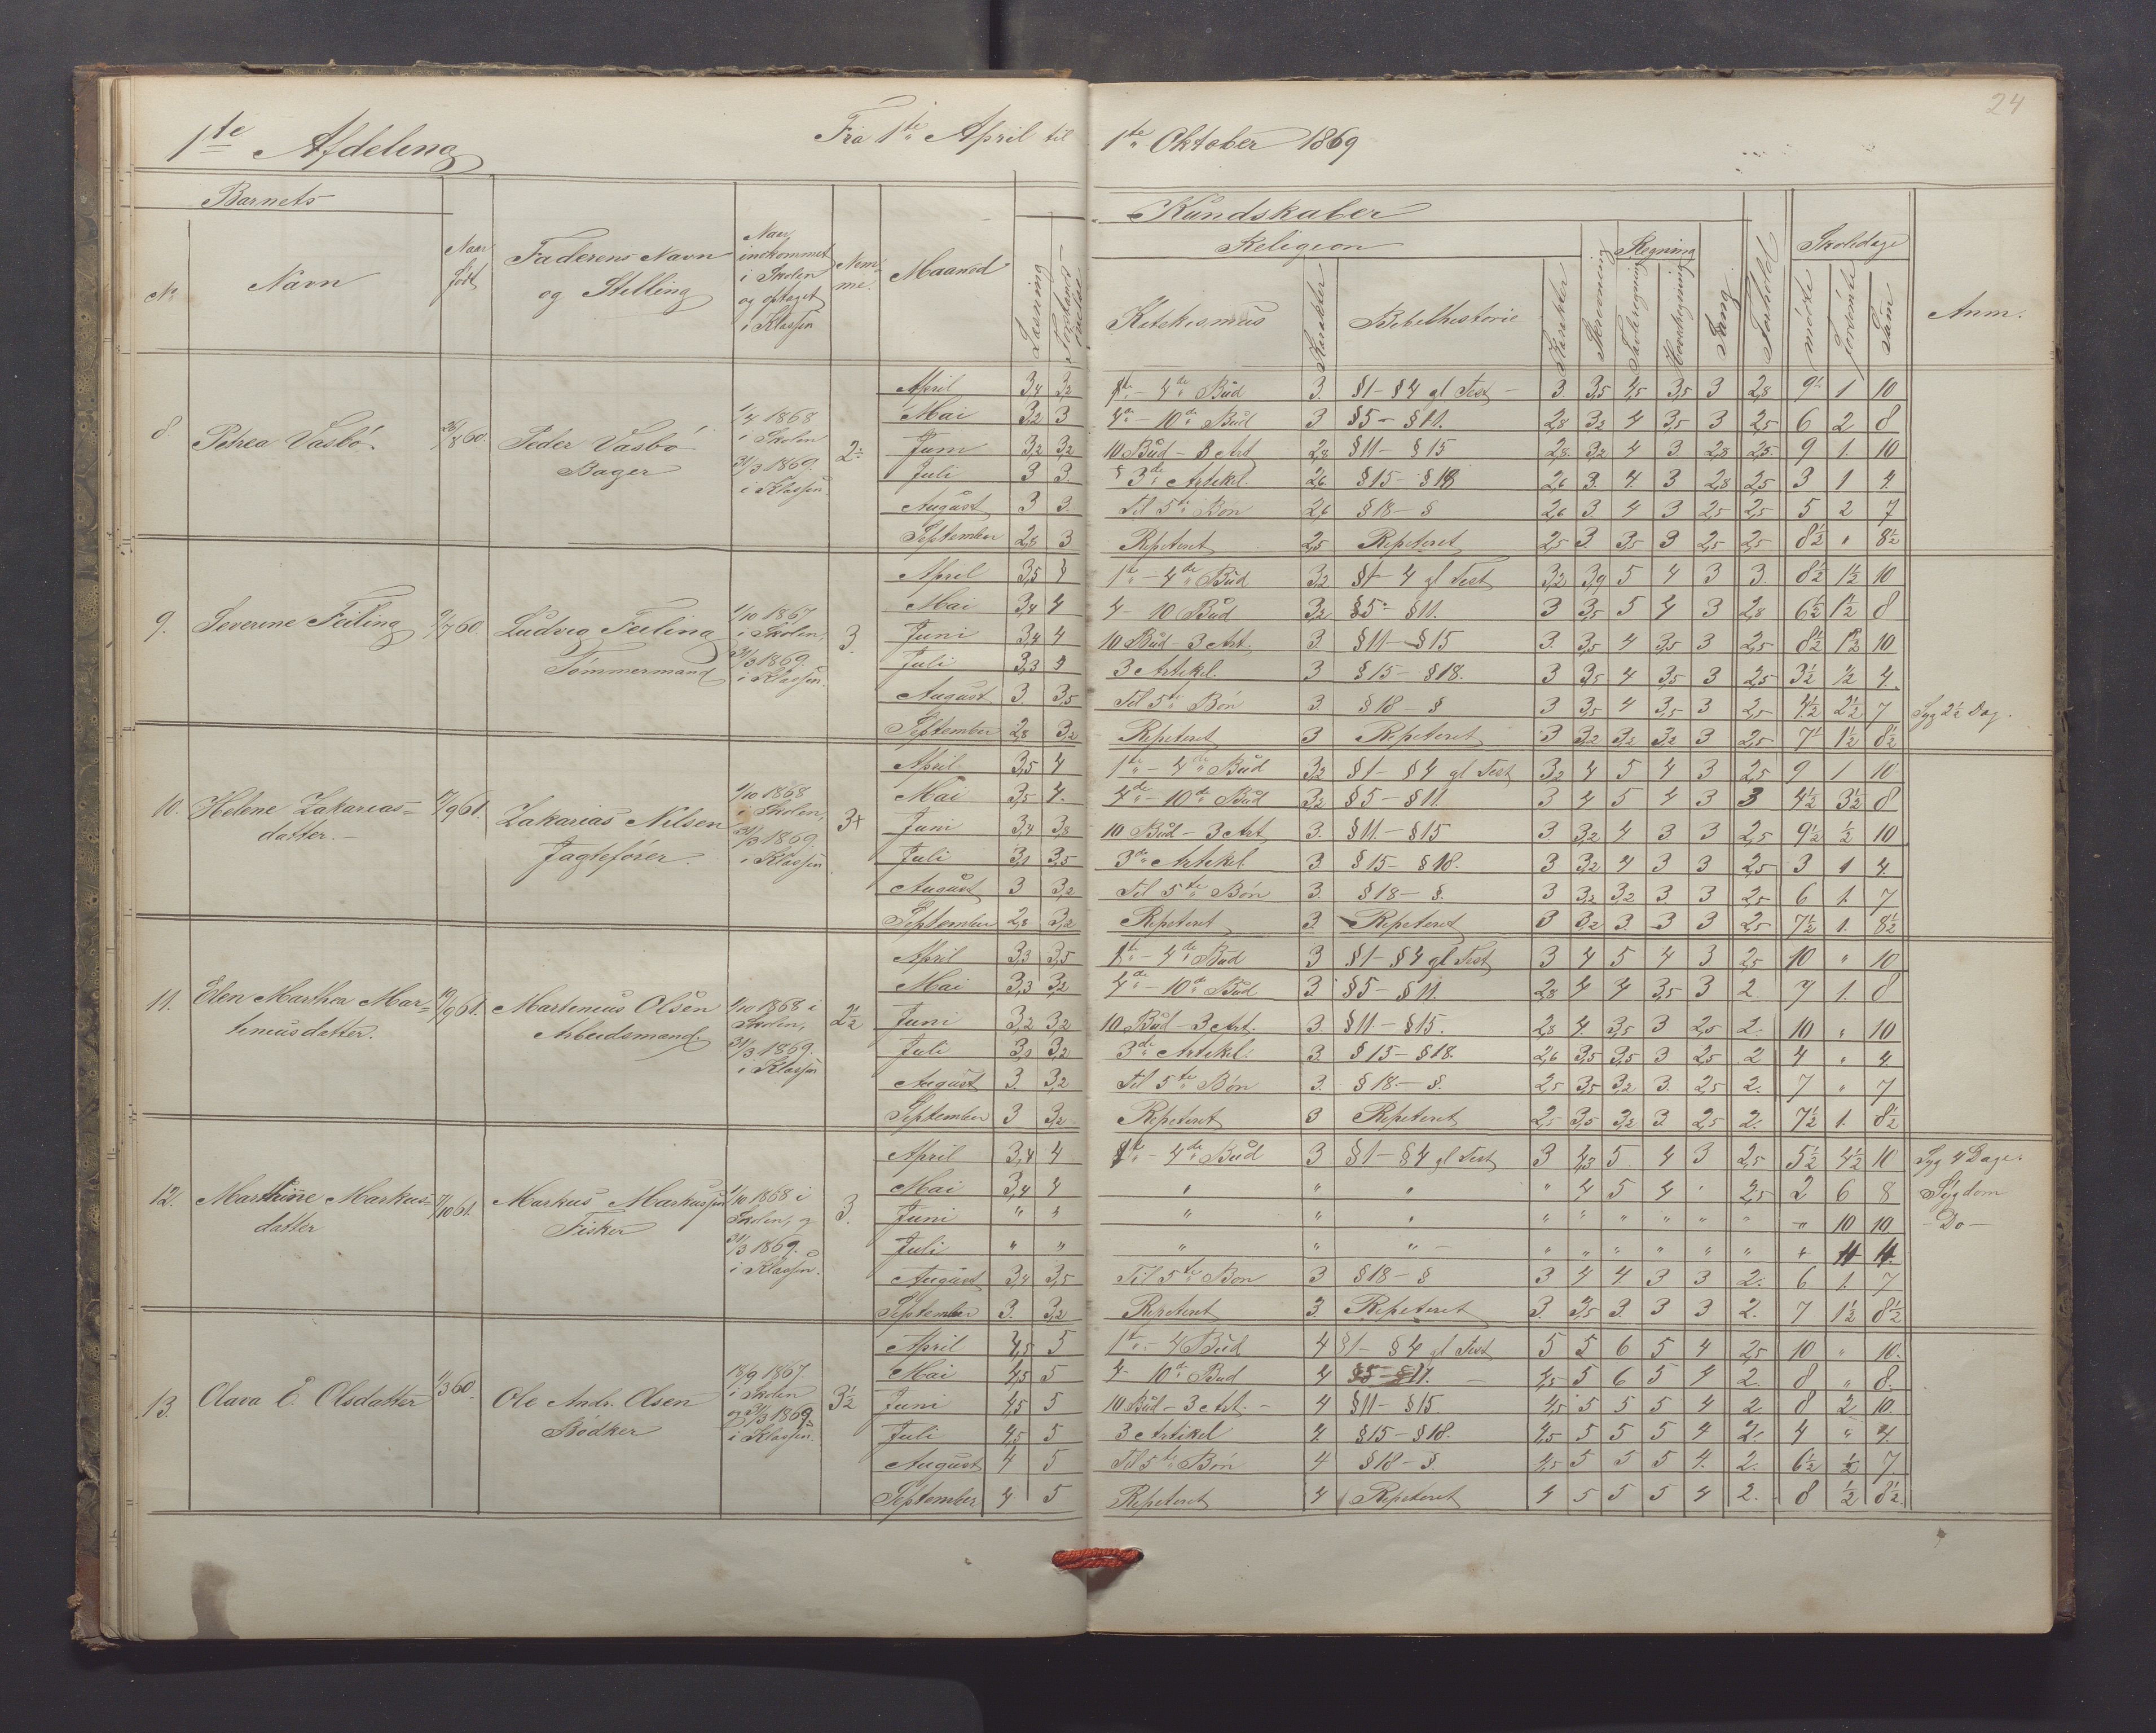 24
1te Afdeling Fra 1te April til 1te Oktober 1869
Barnets Kundskaber
Religion Skrivning Regning Sang Forhold Skoledage
No Navn Naar født Faderens Navn og Stilling Naar indkommet i Skolen og optaget i Klassen Nemme. Maaned Læsning Katekismus Karakter Bibelhistorie Karakter Tavleregning Hovedregning mødte forsømte Sum Anm.
8. Petrea Vasbó 26/8 60. Peder Vasbó Bager 1/4 1868 i Skolen 31/3 1869. i Klassen 2
April 3,4 3,2 1te - 4de Bŭd 3. §1 - §4 gl Test 3. 3,5 4,5 3,5 3 2,8 9 1 10
Mai 3,2 3 4de - 10de Bŭd 3 §5 - §11. 2,8 3,2 4 3,5 3 2,5 6 2 8
Juni 3,2 3,2 10 Bŭd - 3 Art 2,8 §11 - §15 2,8 3,2 4 3 2,8 2,5 9 1. 10
Juli 3 3. 3de Artikel. 2,6 §15 - §18 2,6 3. 4 3 2,8 2,5 3 1 4.
Aŭgŭst 3 3. Til 5te Bøn 2,6 §18 - § 2,6 3 4 3 2,5 2,5 5 2 7
September 2,8 3 Repeteret 2,5 Repeteret 2,5 3. 3,5 3 2,5 2,5 8½ " 8½
9. Severine Feiling 9/7 60. Ludvig Feiling Tømmermand 1/10 1867 i Skolen, 31/3 1869. i Klassen. 3.
April 3,5 4 1te - 4de Bŭd 3,2 §1 - 4 gl Test 3,2 3,9 5 4 3 3. 8½ 1½ 10
Mai 3,4 4 4 - 10 Bŭd 3,2 §5 - §11. 3 3,5 5 4 3 2,8 6½ 1½ 8
Juni 3,4 4 10 Bŭd - 3 Art. 3. §11 - §15 3. 3,5 4 3,5 3 2,5 8½ 1½ 10
Juli 3,3 4 3 Artikel. 3 §15 - §18. 3 3,5 4 3,5 3 2,5 3½ ½ 4.
Aŭgŭst 3. 3,5 Til 5te Bøn 3. §18 - § 3 3,5 4 3,5 3 2,5 4½ 2½ 7 Syg 2½ Dag.
September 2,8 3,2 Repeteret 3 Repeteret 3 3,2 3,2 3,2 3 2,5 7 1½ 8½
10. Helene Zakarias=datter. 17/9 61. Zakarias Nilsen Jagtefører. 1/10 1868 i Skolen, 31/3 1869. i Klassen 3+
April 3,5 4 1te - 4de Bŭd 3,2 §1 - §4 gl Test 3,2 4 5 4 3 2,5 9 1 10
Mai 3,5 4. 4de - 10de Bŭd 3,2 §5 - §11 3 4 5 4 3 3 4½ 3½ 8
Juni 3,4 3,8 10 Bŭd - 3 Art 3. §11. - §15 3. 3,2 4 3 3 2,5 9½ ½ 10
Juli 3,1 3,5 3de Artikel. 3 §15 - §18. 3 3,2 4 3 3 2,5 3 1 4.
Aŭgŭst 3 3,2 Til 5te Bøn 3. §18 - §. 3 3,2 3,2 3 3 2,5 6 1. 7
September 2,8 3,2 Repeteret 3. Repeteret 3 3,2 3. 3 3 2,5 7½ 1. 8½
11. Elen Marthea Mar=tinusdatter. 19/9 61. Martenius Olsen Arbeidsmand. 1/10 1868 i Skolen, 31/3 1869. i Klassen 2½
April 3,3 3,5 1te - 4de Bud 3 §1 - §4 gl Test 3 4 5 4 3 2,5 10 " 10
Mai 3,3 3,2 4de - 10de Bŭd 3. §5 - §11. 2,8 4 4 3,5 3 2. 7 1. 8
Juni 3,2 3,2 10 Bŭd - 3 Art. 3. §11. - §15. 2,8 4 3,5 3 2,5 2. 10 " 10
Juli 3,1 3,2 3de Artikel. 3. §15 - §18. 2,6 3,5 3,5 3 2,5 2 4 " 4.
August 3. 3,2 Til 5te Bøn 3. §18. - §. 2,5 3,5 3,2 3. 2,5 2. 7 " 7
September 3 3,2 Repeteret 3 Repeteret 2,5 3,5 3,2 3 2,5 2. 7½ 1. 8½
12. Marthine Markus=datter 7/10 61. Markus Markussen Fisker 1/10 1868 i Skolen, og 31/3 1869. i Klassen. 3.
April 3,4 4 1te - 4de Bŭd 3 §1 - §4 gl Test 3 4,3 5 4 3 2,5 5½ 4½ 10 Syg 4 Dage.
Mai 3,4 4 " " " " 4 5 4 " 2,5 2 6 8 Sygdom
Juni " " " " " " " " " " " " 10 10 - Do -
Juli " " " " " " " " " " " " 4 4.
August 3,4 3,5 Til 5te Bøn 3 §18 - § 3 4 4 3 3 2. 6 1. 7
September 3. 3,2 Repeteret 3 Repeteret 3. 3,5 3. 3 3 2. 7 1½ 8½
13. Olava E. Olsdatter 1/3 60. Ole Andr. Olsen Bødker 18/9 1867. i Skolen og 31/3 1869. i Klassen. 3½
April 4,5 5 1te - 4 Bŭd 4 §1 - §4 gl Test 5 5 6 5 4 2,5 10 " 10.
Mai 4,5 5 4 - 10de Bud 4 §5 - §11. 4,5 5 6 5 4 2. 8 " 8.
Juni 4,5 5 10 Bŭd - 3 Art. - 4 §11 - §15 4,5 5 5 5 4 2 8 2 10.
Juli 4,5 5 3 Artikel 4. §15 - §18. 4,5 5 5 5 4 2. 4 " 4.
August 4 5 Til 5te Bøn 4 §18 - §. 4,5 5 5 5 4. 2. 6½ ½ 7.
September 4 5 Repeteret 4 Repeteret 4 5 5 5 4 2. 8 ½ 8½.